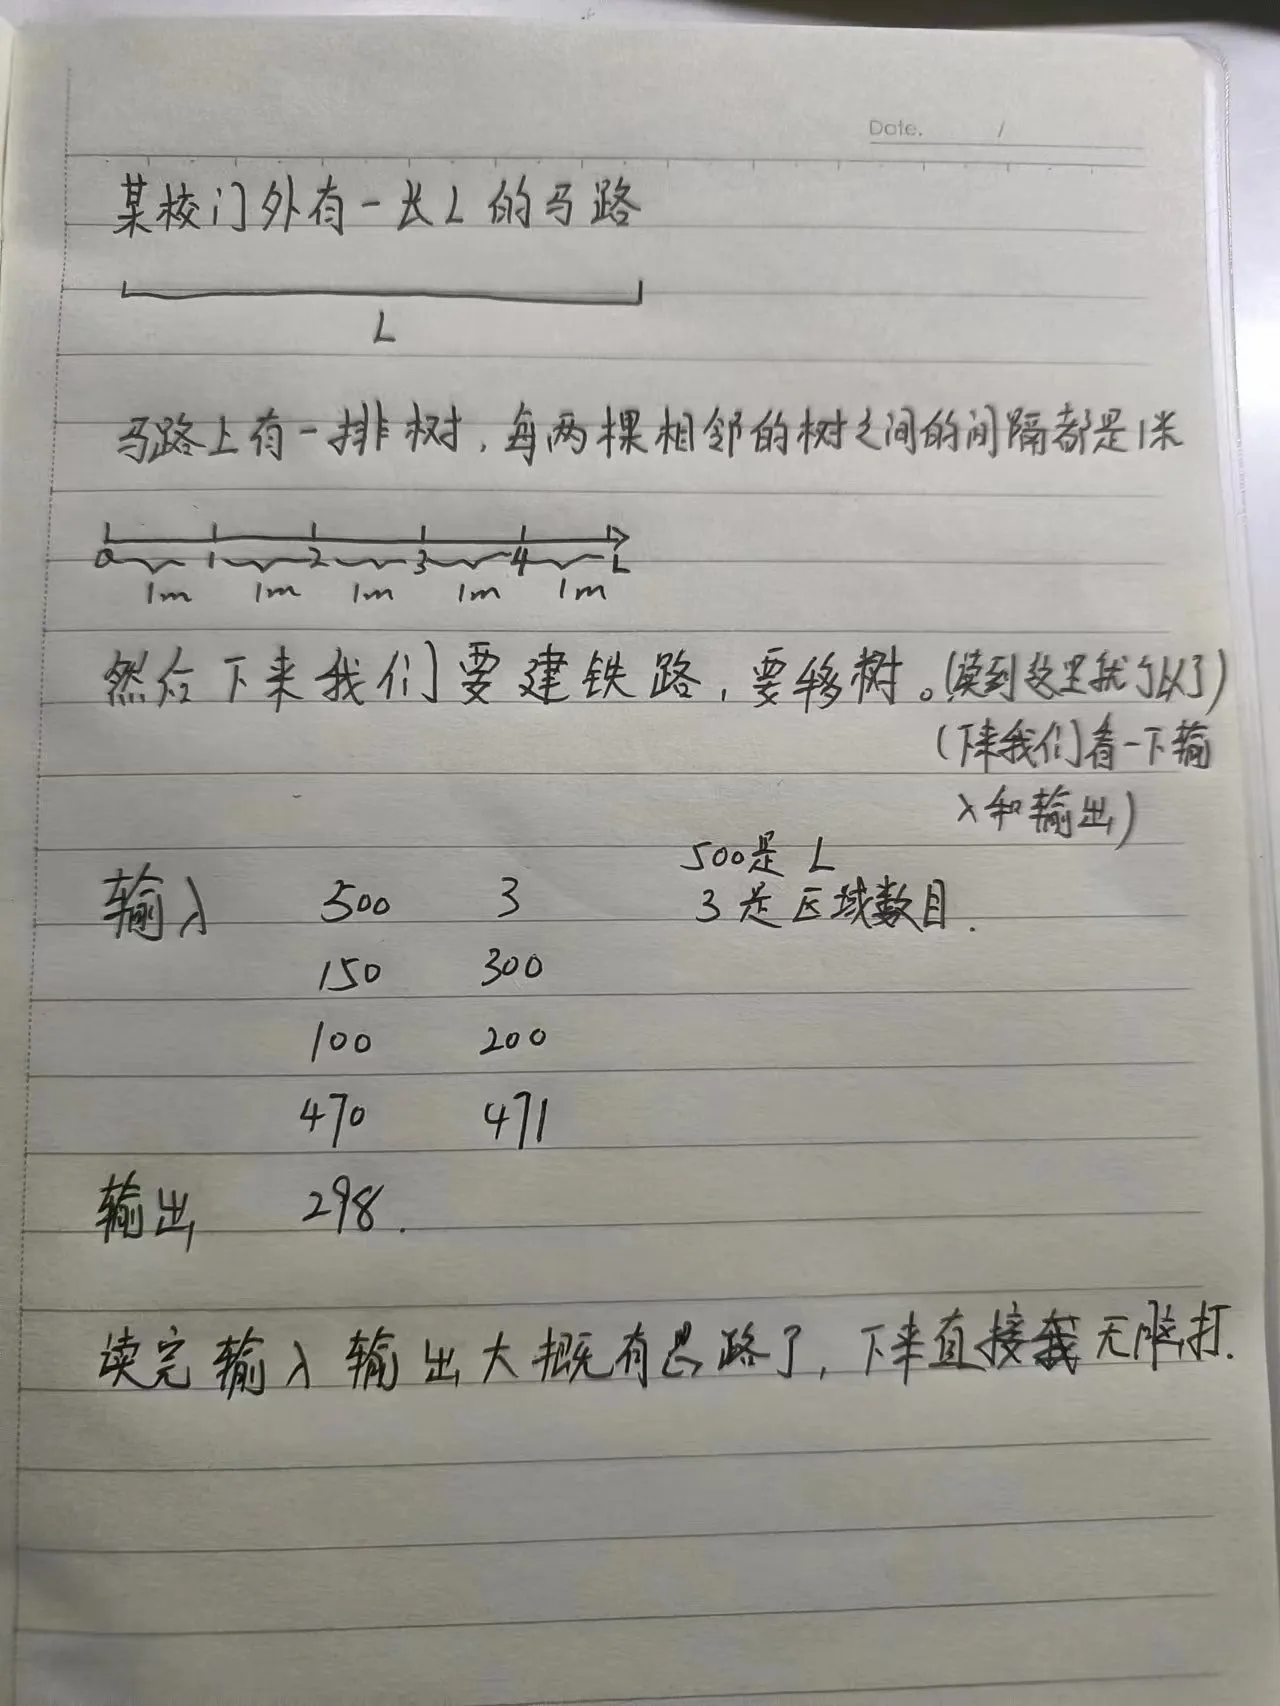 Date. /
某校门外有一长L的马路
L
马路上有一排树，每两棵相邻的树之间的间隔都是1米
0 1 2 3 4 L
1m 1m 1m 1m 1m
然后下来我们要建铁路，要移树。(读到这里就可以了)
(下来我们看一下输
入和输出)
500是 L
输入 500 3 3是区域数目.
150 300
100 200
470 471
输出 298.
读完输入输出大概有思路了，下来直接我无脑打.